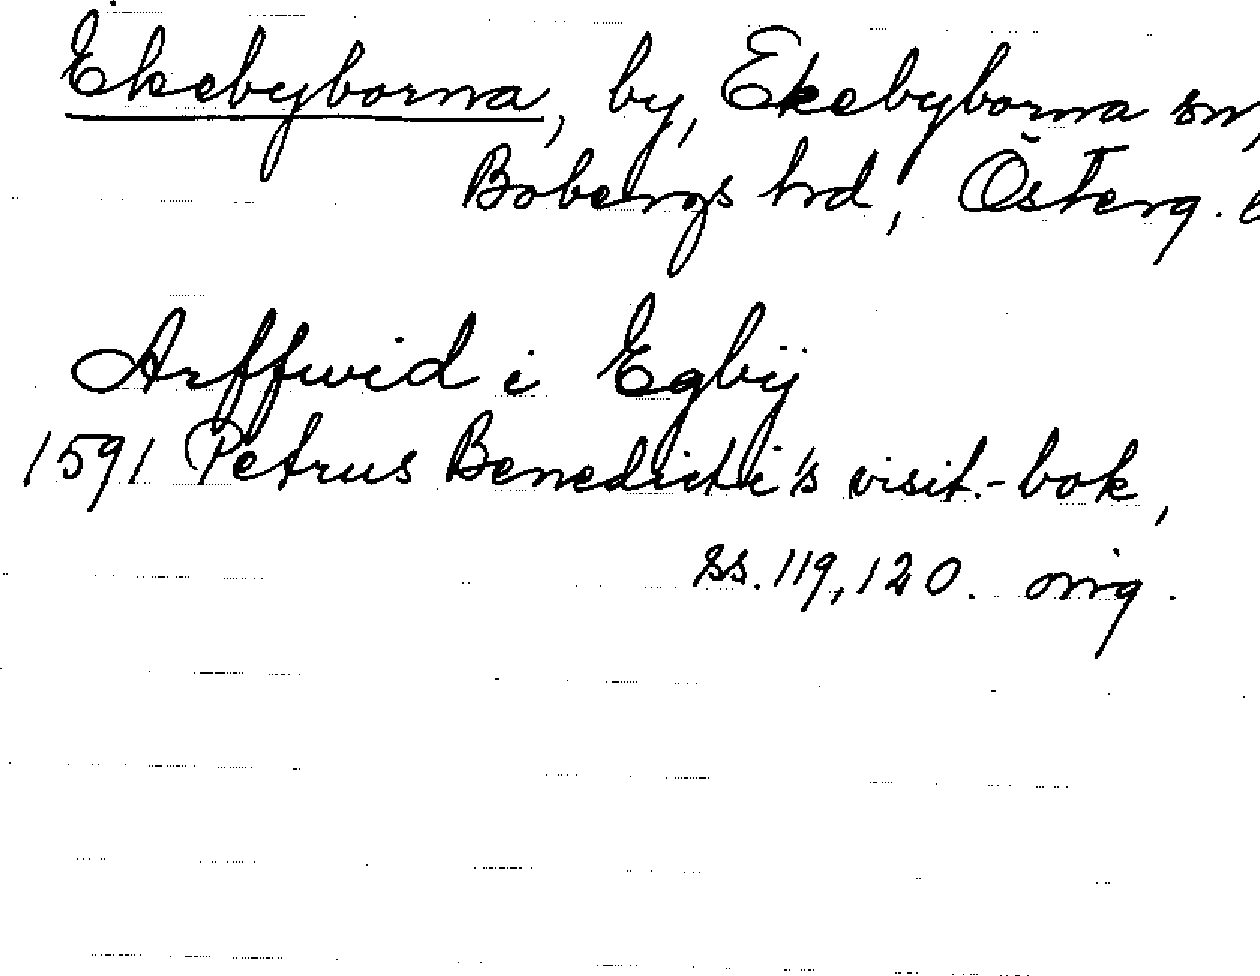 Ekebyborna, by, Ekebyborna sn,
Bobergs hrd, Österg.
Arffwid i Egbÿ
1591 Petrus Benedicti's visit.-bok,
ss. 119, 120.